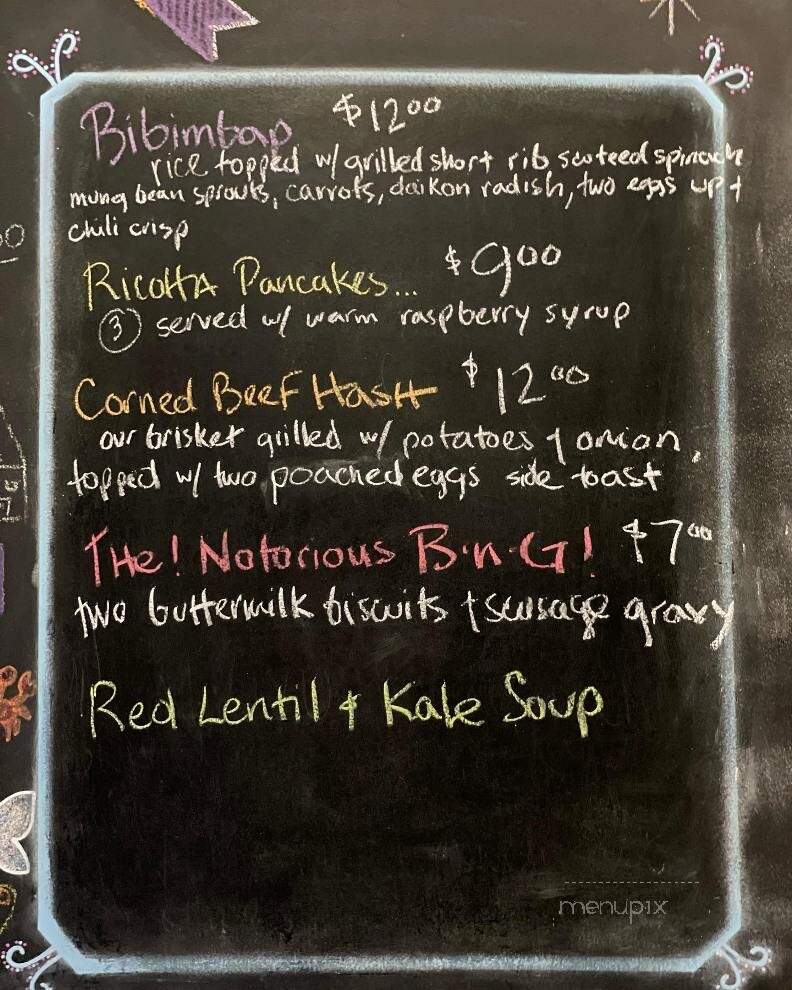 Bibimbap $12 00
rice topped w/ grilled short rib sauteed spinach
mung bean sprouts, carrots, daikon radish, two eggs up +
chili crisp
Ricotta Pancakes... $9 00
3 served w/ warm raspberry syrup
Corned Beef Hash $12 00
our brisket grilled w/ potatoes & onion,
topped w/ two poached eggs side toast
THe! Notorious B.n.G! $7 00
two buttermilk biscuits + sausage gravy
Red Lentil & Kale Soup
menupix